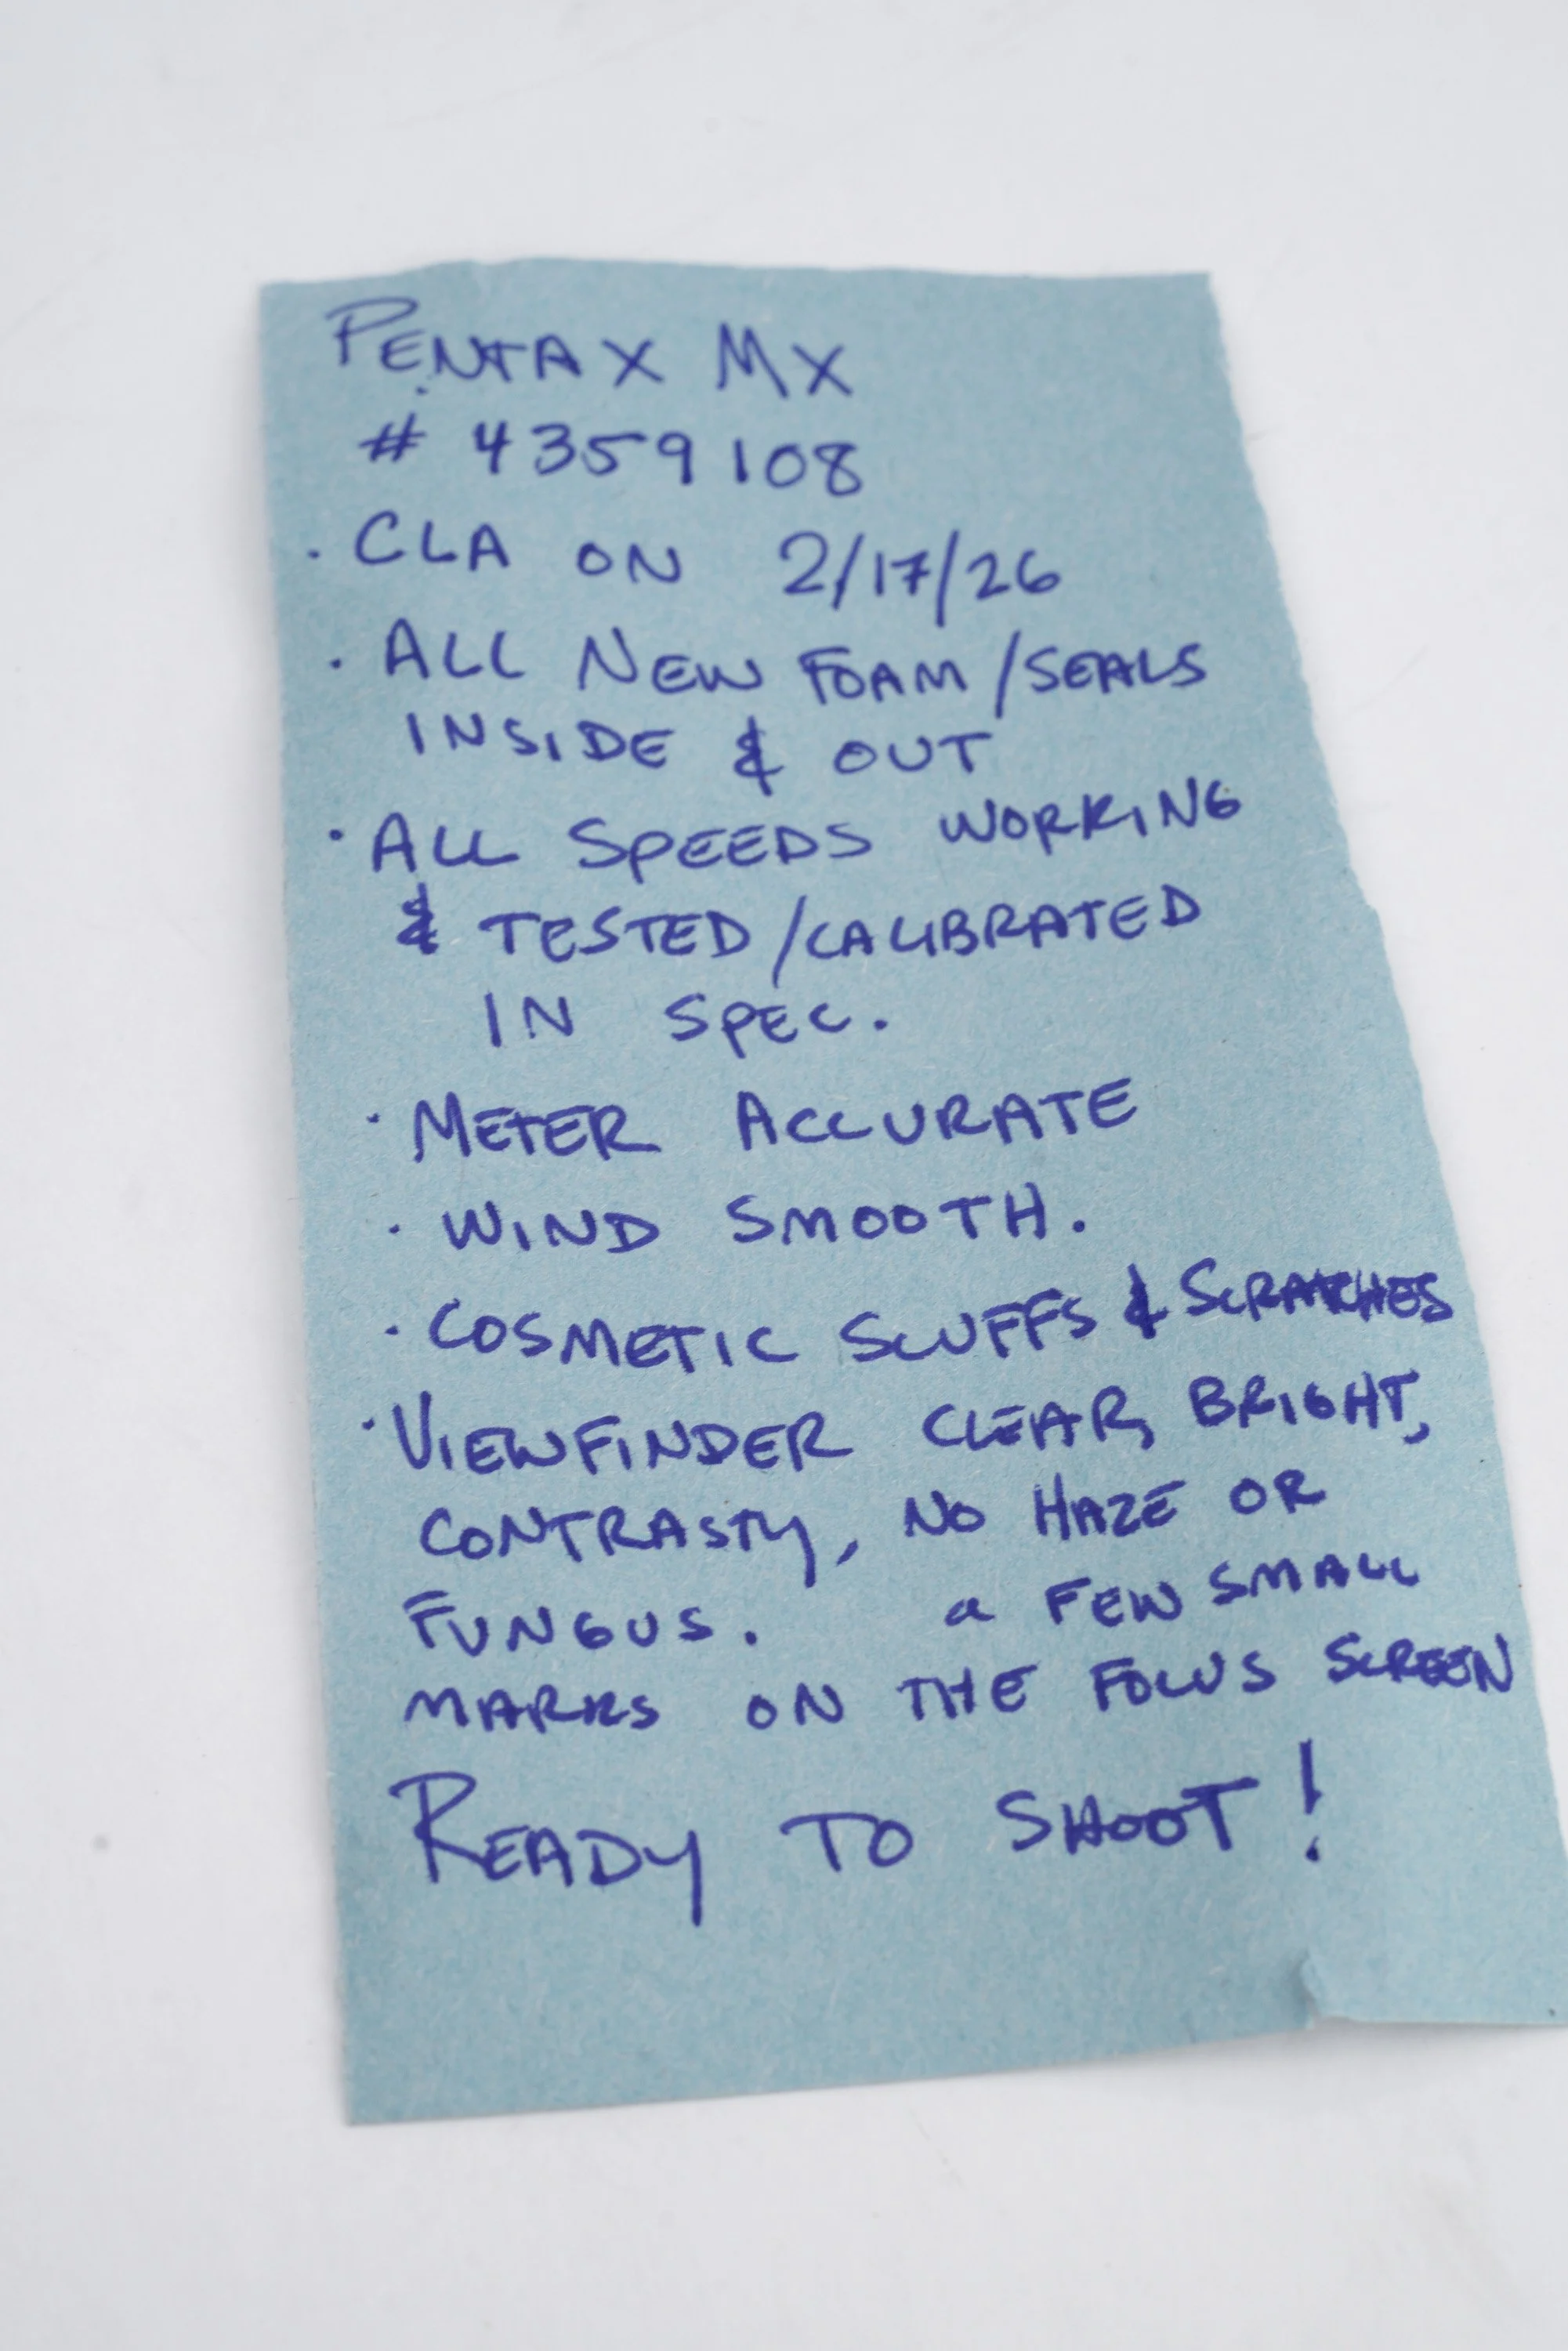 PENTAX MX
# 4359108
· CLA ON 2/17/26
· ALL NEW FOAM/SEALS
INSIDE & OUT
· ALL SPEEDS WORKING
& TESTED/CALIBRATED
IN SPEC.
· METER ACCURATE
· WIND SMOOTH.
· COSMETIC SCUFFS & SCRATCHES
· VIEWFINDER CLEAR, BRIGHT,
CONTRASTY, NO HAZE OR
FUNGUS. a FEW SMALL
MARKS ON THE FOCUS SCREEN
READY TO SHOOT!